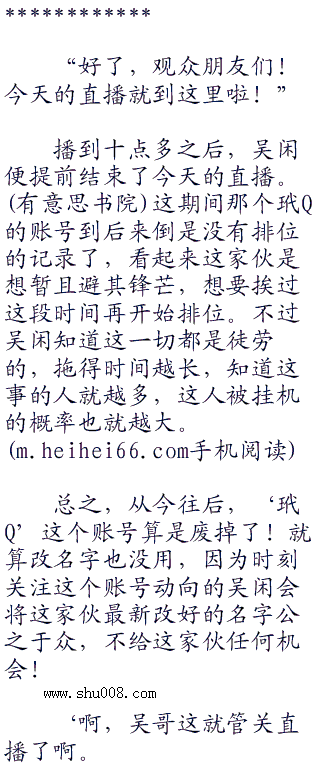 ************
“好了，观众朋友们！
今天的直播就到这里啦！”
播到十点多之后，吴闲
便提前结束了今天的直播。
(有意思书院)这期间那个玳Q
的账号到后来倒是没有排位
的记录了，看起来这家伙是
想暂且避其锋芒，想要挨过
这段时间再开始排位。不过
吴闲知道这一切都是徒劳
的，拖得时间越长，知道这
事的人就越多，这人被挂机
的概率也就越大。
(m.heihei66.com手机阅读)
总之，从今往后，‘玳
Q’这个账号算是废掉了！就
算改名字也没用，因为时刻
关注这个账号动向的吴闲会
将这家伙最新改好的名字公
之于众，不给这家伙任何机
会！
www.shu008.com
‘啊，吴哥这就管关直
播了啊。